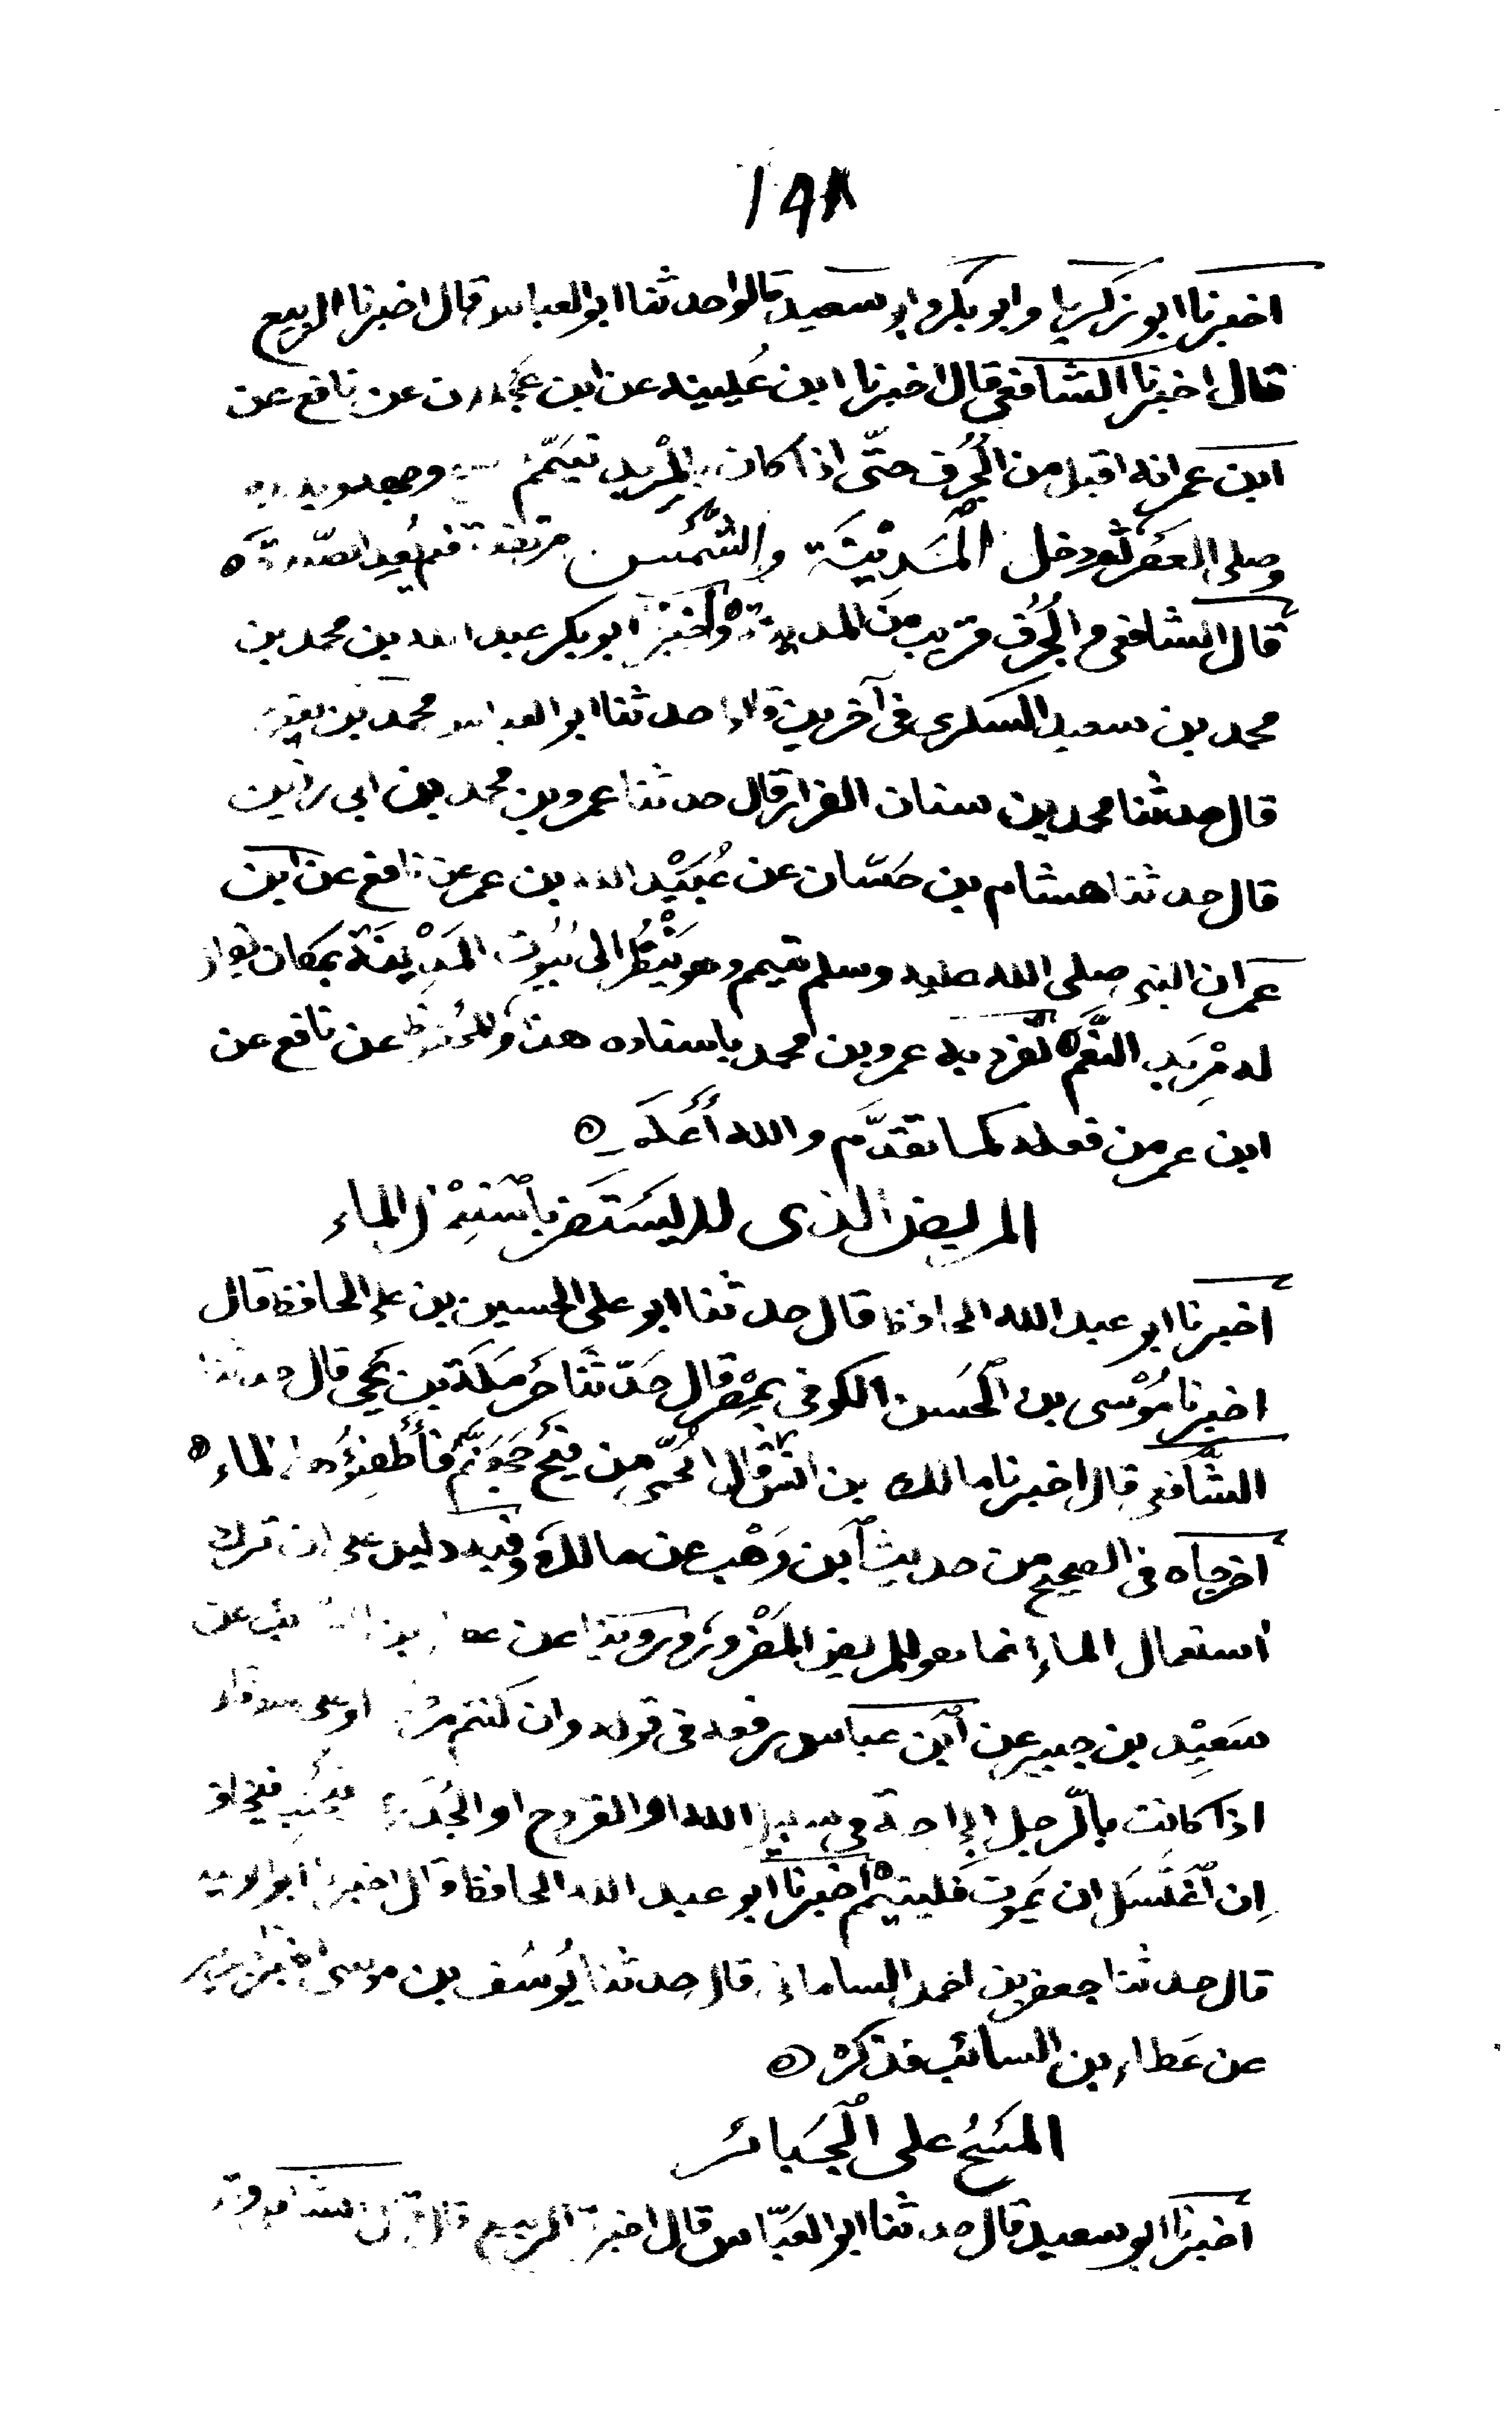 ١٩٨
اخبرنا ابو زكريا وابو بكر وابو سعيد قالوا حدثنا ابو العباس قال اخبرنا الربيع
قال اخبرنا الشافعي قال اخبرنا ابن عُيينه عن ابن عجلان عن نافع عن
ابن عمر انه اقبل من الجُرُف حتّى اذا كان بالمِرْبد تيمّم فمسح وجهه ويديه
وصلى العصر ثم دخل المَدِيْنَة والشّمْس مرتفعة فلم يُعِد الصّلاة ه
قال الشافعي والجُرُف قريب من المدينة ه واخبرنا ابو بكر عبد الله بن محمد بن
محمد بن سعيد السكري في آخرين قالوا حدثنا ابو العباس محمد بن يعقوب
قال حدثنا محمد بن سنان القزاز قال حدثنا عمرو بن محمد بن ابي رزين
قال حدثنا هشام بن حَسّان عن عُبَيْد الله بن عمر عن نافع عن ابن
عمر ان النبي صلى الله عليه وسلم تيمم وهو يَنْظُر الى بُيُوت المَدِيْنَة بمكان يقال
له مِرْبَد النَّعَم ه تفرد به عمرو بن محمد باسناده هذا والمحْفوظ عن نافع عن
ابن عمر من فعله كما تقدَّم والله أَعْلَم ه
المريض الذي لا يستضر باستعمال الماء
اخبرنا ابو عبد الله الحافظ قال حدثنا ابو علي الحسين بن علي الحافظ قال
اخبرنا مُوْسى بن الحَسن الكوفي بمِصْر قال حَدّثنَا حَرْمَلَة بن يَحْيى قال حدثنا
الشّافعي قال اخبرنا مالك بن انس قال الحُمّى مِن فَيْح جَهَنّم فأَطْفِئُوها بالماء ه
اخرجاه في الصحيح من حديث ابن وَهْب عن مالك وفيه دليل على ان ترك
استعمال الماء انما هو للمريض المَخْصوص وروينا عن عطاء بن السائب عن
سَعِيْد بن جبير عن ابن عباس رفعه في قوله وان كنتم مرضى او على سفر قال
اذا كانت بالرّجل الجراحة في سبيل الله او القروح او الجُدَري فيجنب فيخاف
اِن اغتَسَل ان يَموت فليتيمّم ه اخبرنا ابو عبد الله الحافظ قال اخبرنا ابو الوليد
قال حدثنا جعفر بن احمد الساماني قال حدثنا يُوسُف بن موسى اخبرنا جرير
عن عَطاء بن السائب فذكره ه
المَسْحُ على الجَبائر
اخبرنا ابو سعيد قال حدثنا ابو العَبّاس قال اخبرنا الربيع قال قال الشافعي وقد